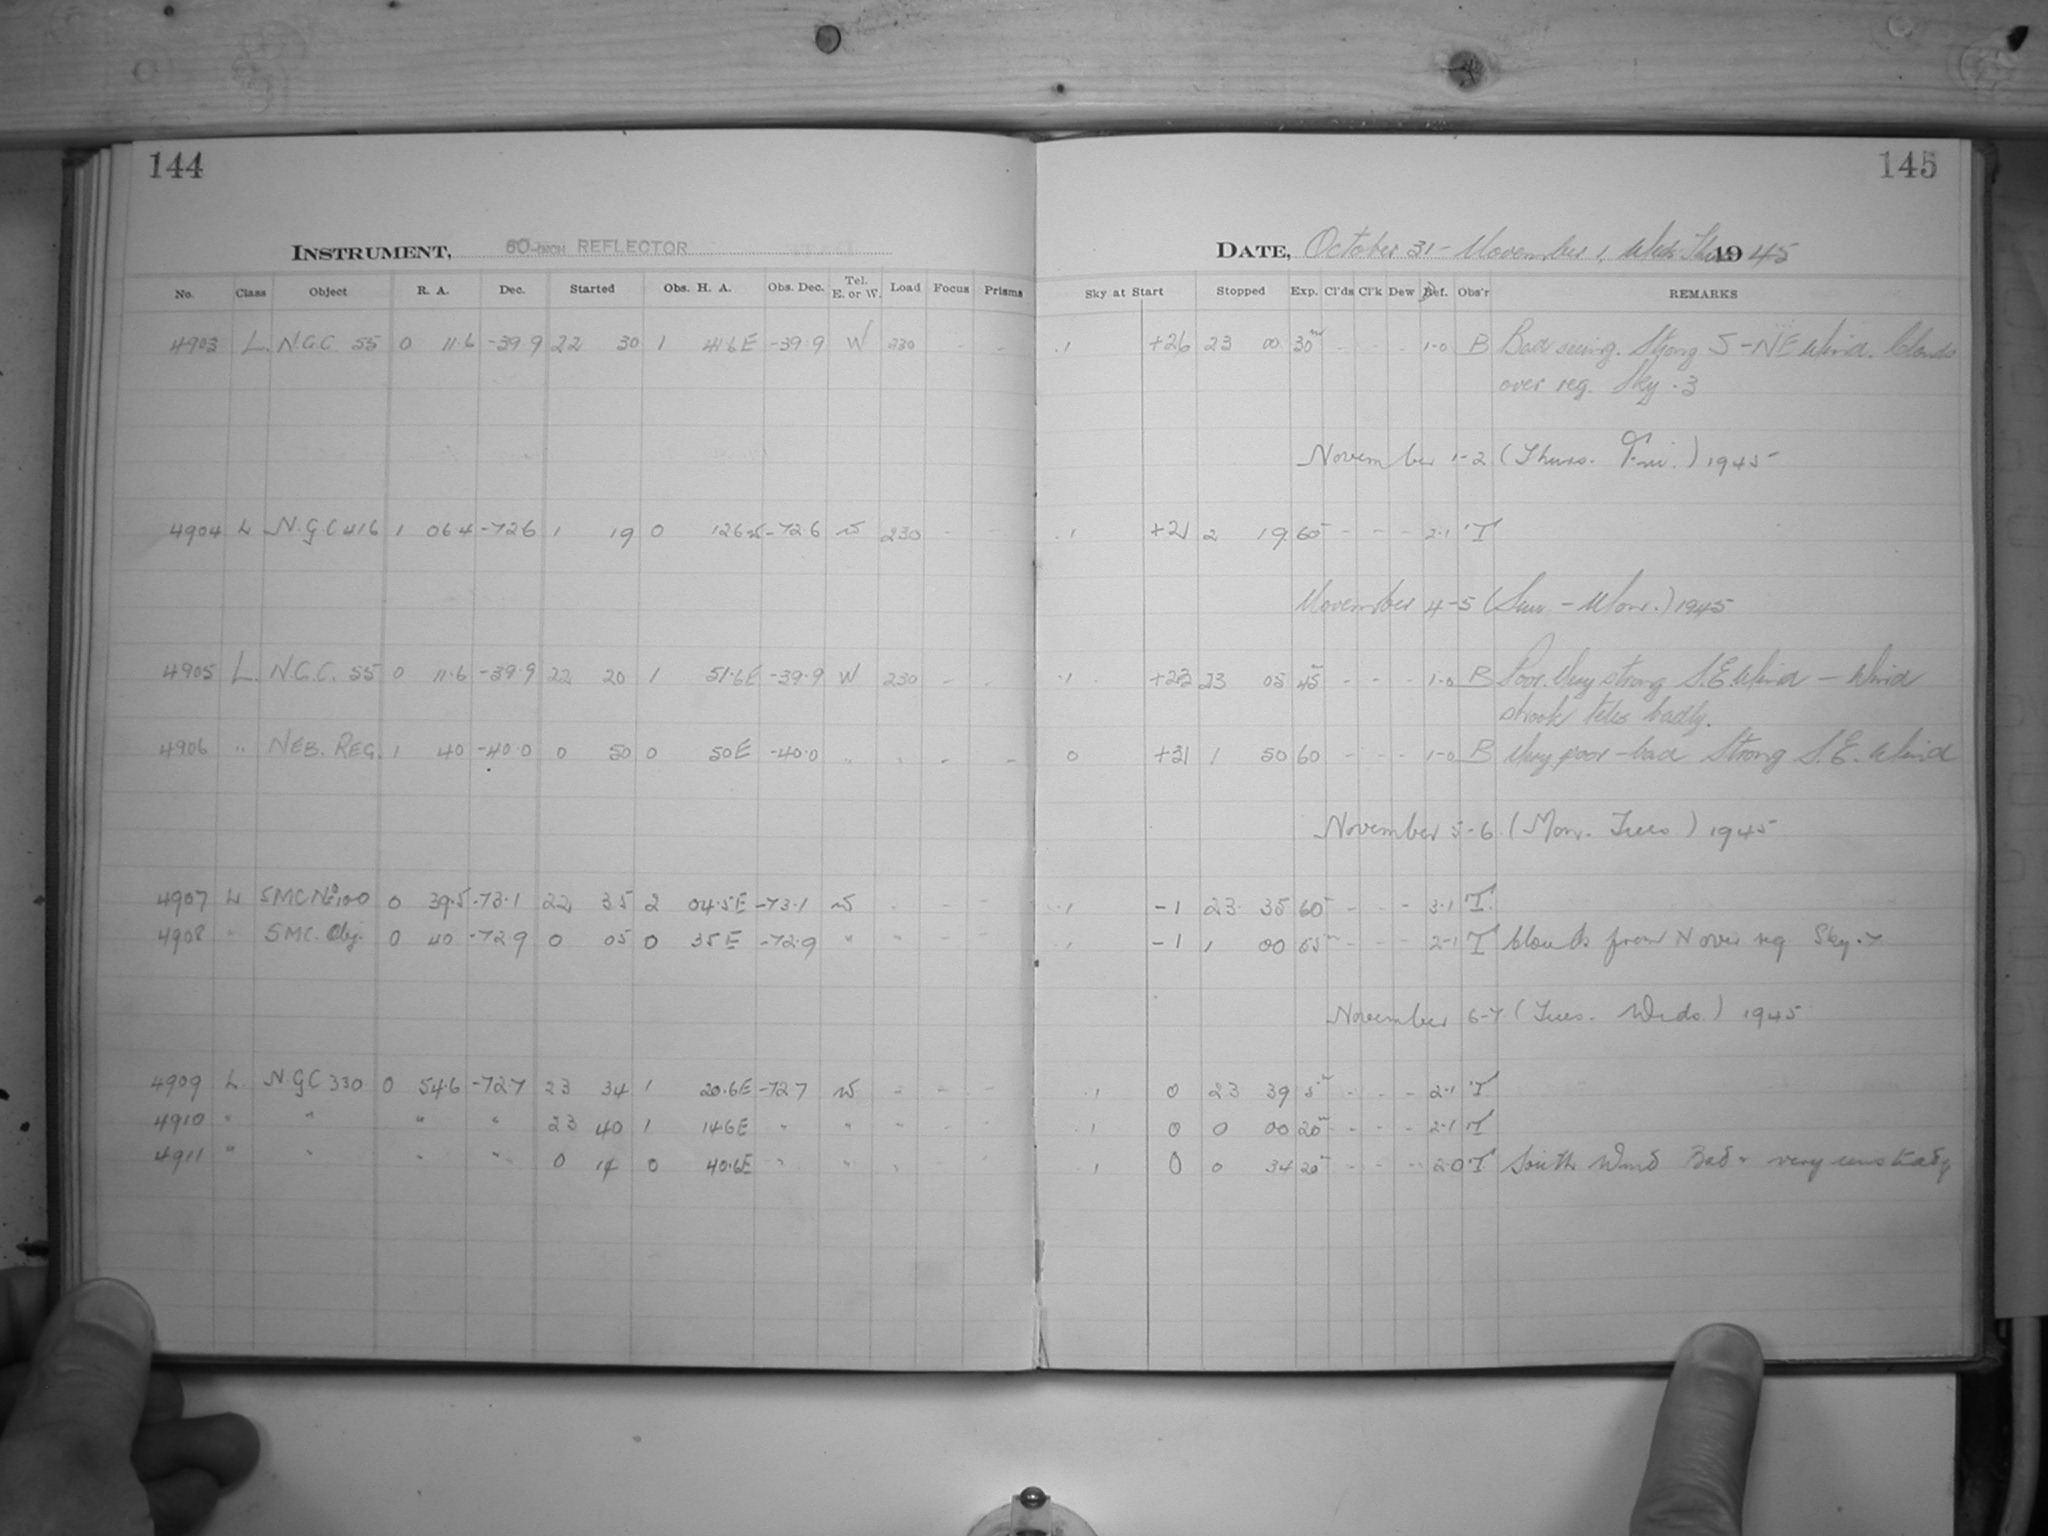 144
145
INSTRUMENT, 60-INCH REFLECTOR
DATE, October 31 - November 1, 1945
No. Class Object R. A. Dec. Started Obs. H. A. Obs. Dec. Tel. E. or W. Load Focus Prisms Sky at Start Stopped Exp. Cl'ds Cl'k Dew Ref. Obs'r REMARKS
4903 L. N.G.C. 55 0 11.6 -39.9 22 30 1 41.6E -39.9 W 230 - - .1 +26 23 00 30m - - - 1-0 B Bad seeing. Strong S-NE Wind. Clouds
over reg. Sky .3
November 1-2 (Thurs. Fri.) 1945
4904 L N.G.C 416 1 06.4 -72.6 1 19 0 -72.6 W 230 - - .1 +21 2 19 60 - - - 2-1 T
November 4-5 (Sun. - Mon.) 1945
4905 L. N.G.C. 55 0 11.6 -39.9 22 20 1 51.6E -39.9 W 230 - - .1 23 05 45m - - - 1-0 B Poor. Very strong S.E. Wind - Wind
shook teles badly.
4906 " NEB. REG. 1 40 -40.0 0 50 0 50E -40.0 " " - - 0 +31 1 50 60 - - - 1-0 B Very poor - bad Strong S.E. Wind
November 5-6 (Mon. Tues.) 1945
4907 L SMC No 100 0 39.5 -73.1 22 35 2 04.5E -73.1 W - - - .1 -1 23 35 60 - - - 3-1 T.
4908 " SMC. Obj. 0 40 -72.9 0 05 0 35E -72.9 " " - - .1 -1 1 00 55m - - - 2-1 T Clouds from N over reg Sky .7
November 6-7 (Tues. Weds.) 1945
4909 L. N.G.C 330 0 54.6 -72.7 23 34 1 20.6E -72.7 W - - - .1 0 23 39 5m - - - 2-1 T
4910 " " " " 23 40 1 14.6E " " " - - .1 0 0 00 20m - - - 2-1 T
4911 " " " " 0 14 0 40.6E " " " - - .1 0 0 34 20m - - - 2-0 T South Wind Bad & very unsteady